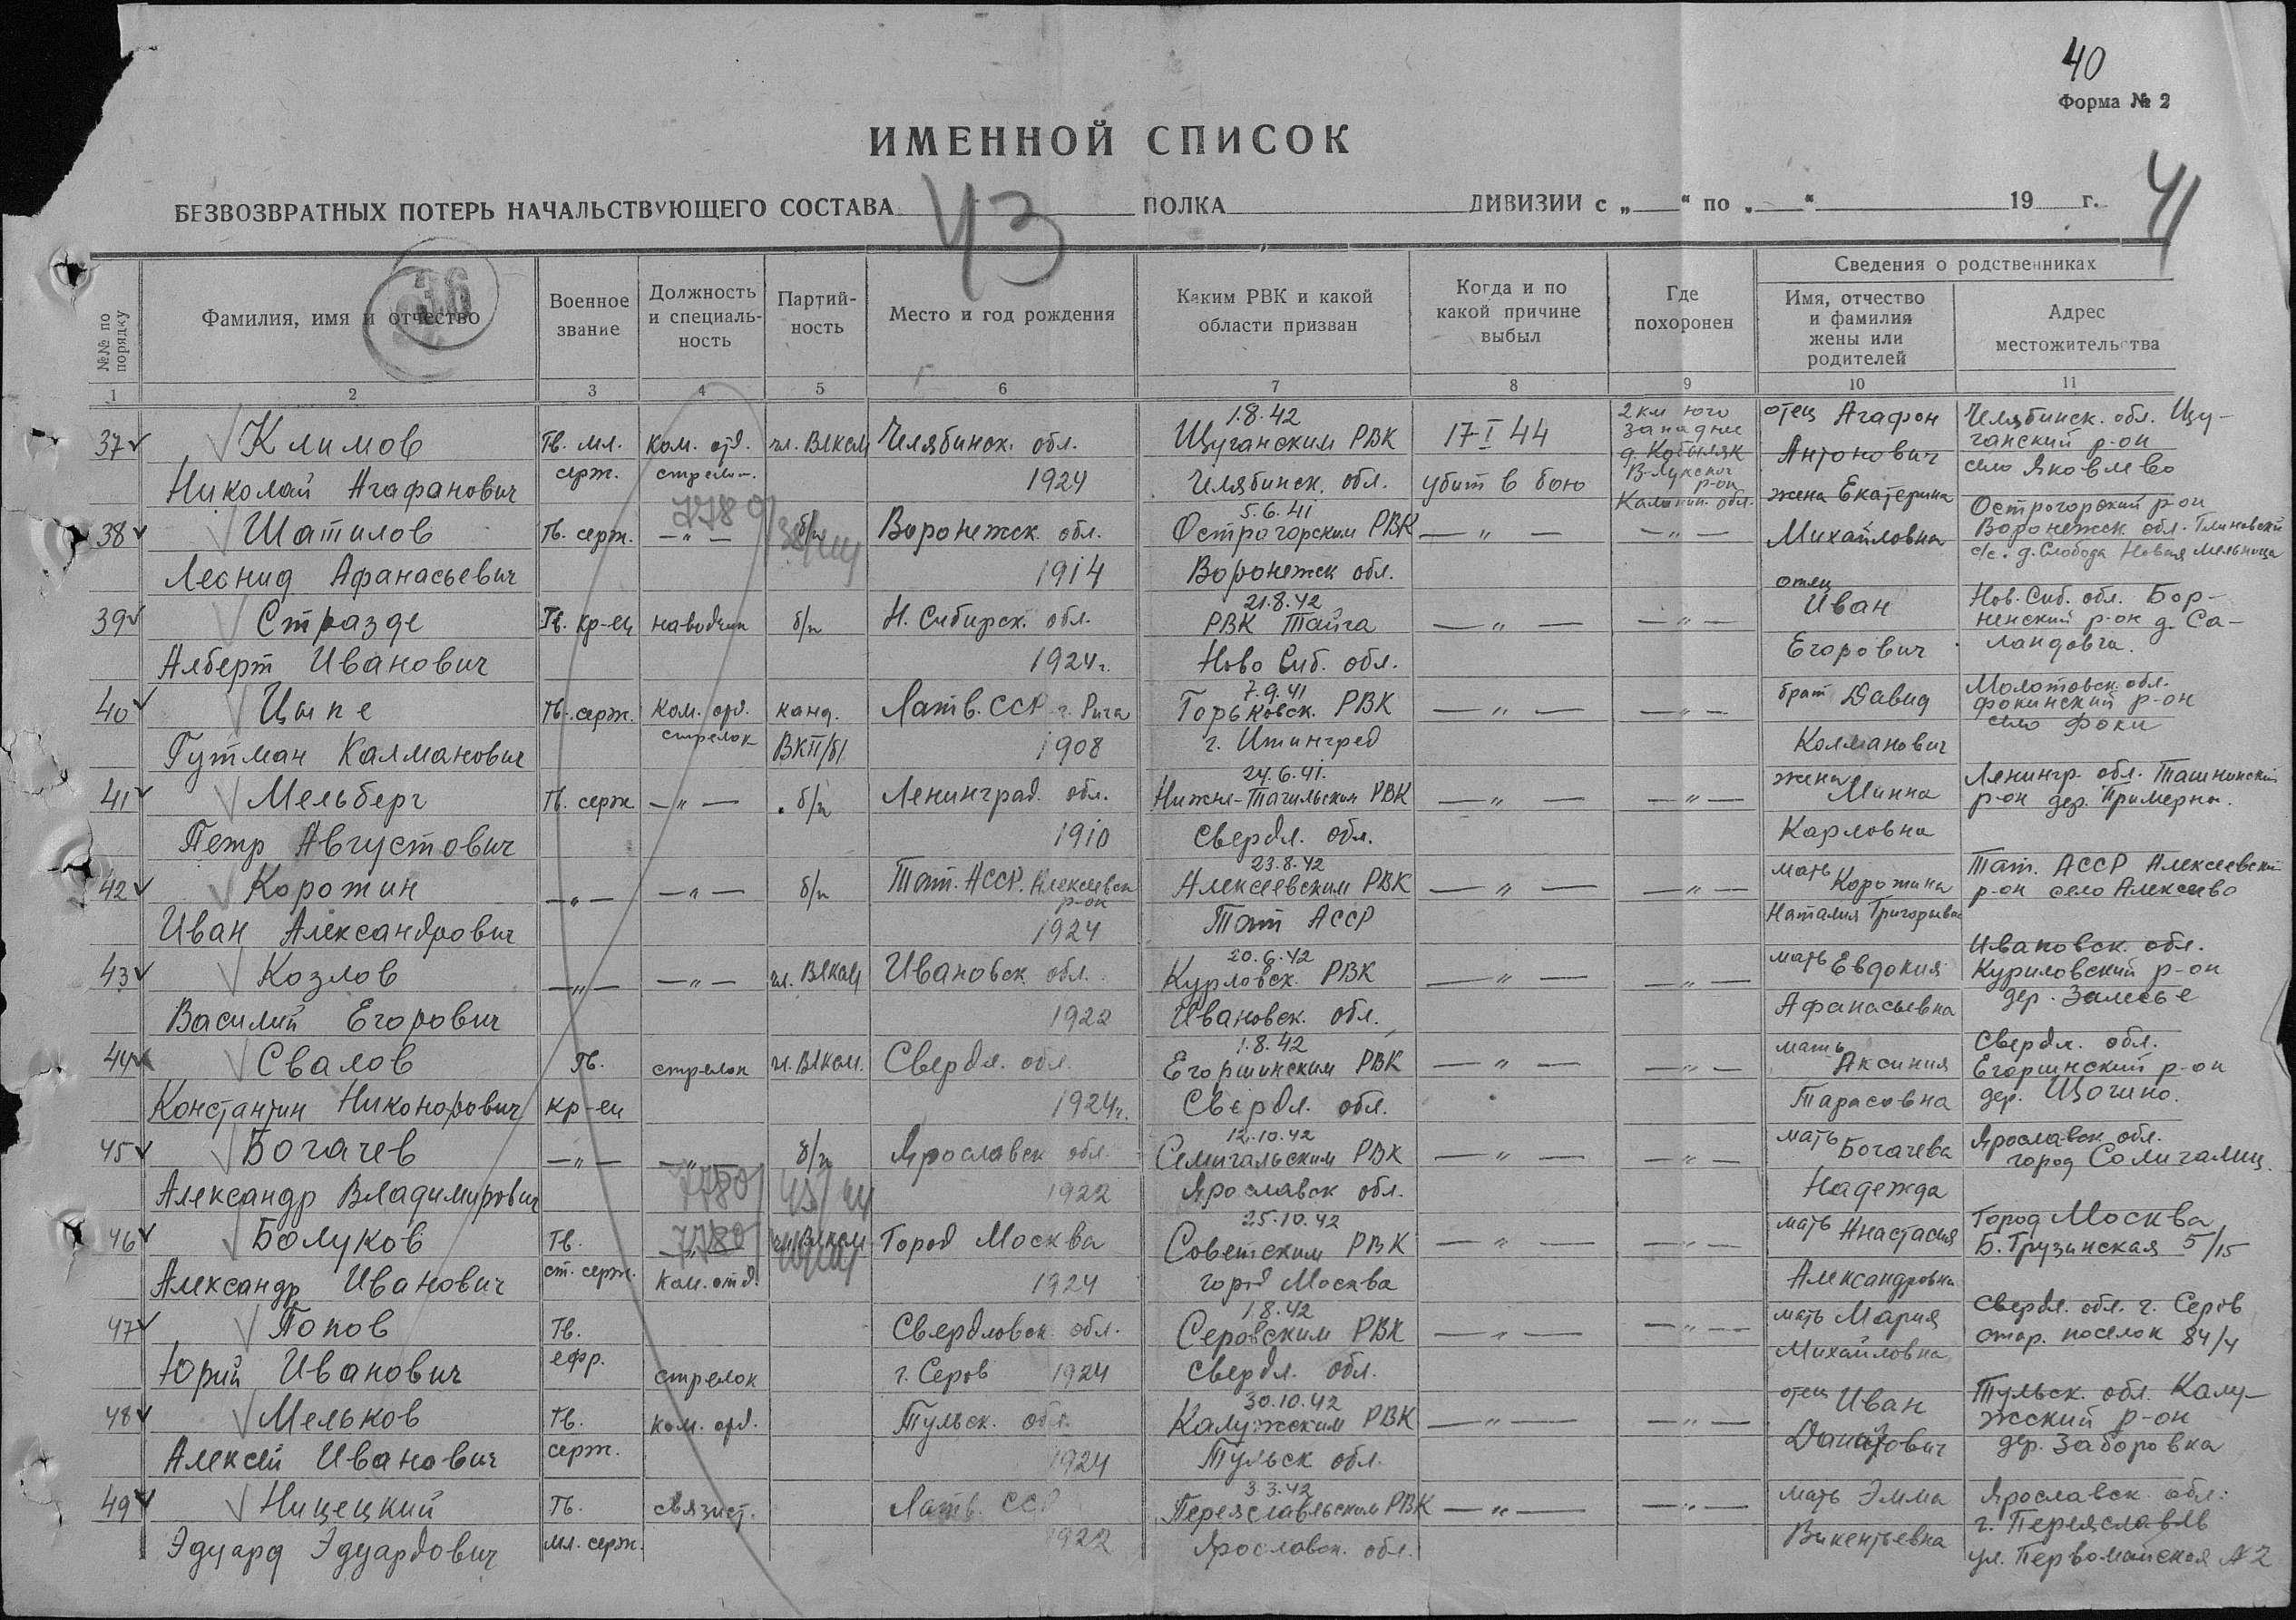 40
Форма № 2
ИМЕННОЙ СПИСОК
41
БЕЗВОЗВРАТНЫХ ПОТЕРЬ НАЧАЛЬСТВУЮЩЕГО СОСТАВА ПОЛКА ДИВИЗИИ с „ “ по „ “ 19 г.
43
№№ по порядку
Фамилия, имя и отчество
Военное звание
Должность и специаль-ность
Партий-ность
Место и год рождения
Каким РВК и какой области призван
Когда и по какой причине выбыл
Где похоронен
Сведения о родственниках
Имя, отчество и фамилия жены или родителей
Адрес местожительства
1 2 3 4 5 6 7 8 9 10 11
37 Климов Гв. мл. Ком. отд. чл. ВЛКСМ Челябинск. обл. 1.8.42 Щуганским РВК 17 I 44 2 км юго западнее отец Агафон Челябинск. обл. Щу-
Николай Агафанович серж. стрелк. 1924 Челябинск. обл. убит в бою д. Кобыляк В-Лукский р-он Калинин. обл. Антонович ганский р-он село Яковлево
38 Шатилов Гв. серж. — " — б/п Воронежск. обл. 5.6.41 Острогорским РВК — " — — " — жена Екатерина Острогорский р-он
Леонид Афанасьевич 1914 Воронежск обл. Михайловна Воронежск. обл. Глиновский с/с. д. Слобода Новая Мельница
39 Стразде Гв. кр-ец наводчик б/п Н. Сибирск. обл. 21.8.42 РВК Тайга — " — — " — отец Иван Нов. Сиб. обл. Бор-
Алберт Иванович 1924 г. Ново Сиб. обл. Егорович ненский р-он д. Са-ландовга.
40 Цыпе Гв. серж. Ком. отд. канд. Латв. ССР г. Рига 7.9.41 Горьковск. РВК — " — — " — брат Давид Молотовск. обл.
Гутман Калманович стрелок ВКП/б/ 1908 г. Колманович фокинский р-он село Фоки
41 Мельберг Гв. серж — " — б/п Ленинград. обл. 24.6.41. Нижне-Тагильским РВК — " — — " — жена Минна Ленингр. обл. Ташнинский
Петр Августович 1910 Свердл. обл. Карловна р-он дер. Примерно.
42 Корожин — " — — " — б/п Тат. АССР. Алексеевск р-он 23.8.42 Алексеевским РВК — " — — " — мать Корожина Тат. АССР Алексеевский
Иван Александрович 1924 Тат АССР Наталия Григорьевна р-он село Алексеево
43 Козлов — " — — " — чл. ВЛКСМ Ивановск обл. 20.6.42 Курловск. РВК — " — — " — мать Евдокия Ивановск. обл.
Василий Егорович 1922 Ивановск. обл. Афанасьевна Куриловский р-он дер. Залесье
44 Свалов Гв. стрелок чл. ВЛКСМ. Свердл. обл. 1.8.42 Егоршинским РВК — " — — " — мать Аксиния Свердл. обл.
Константин Никонорович кр-ец 1924 г. Свердл. обл. Тарасовна Егоршинский р-он дер.
45 Богачев — " — — " — б/п Ярославск обл. 12.10.42 Семигальским РВК — " — — " — мать Богачева Ярославск обл.
Александр Владимирович 1922 Ярославск обл. Надежда город Солигалич.
46 Болуков Гв. чл ВЛКСМ Город Москва 25.10.42 Советским РВК — " — — " — мать Анастасия Город Москва
Александр Иванович ст. серж. Ком. отд. 1924 город Москва Александровна Б. Грузинская 5/15
47 Попов Гв. Свердловск. обл. 1.8.42 Серовским РВК — " — — " — мать Мария Свердл. обл. г. Серов
Юрий Иванович ефр. стрелок г. Серов 1924 Свердл. обл. Михайловна стар. поселок 84/4
48 Мельков Гв. ком. отд. Тульск. обл. 30.10.42 Калужским РВК — " — — " — отец Иван Тульск. обл. Калу-
Алексей Иванович серж. 1924 Тульск обл. жский р-он дер. Заборовка
49 Ницецкий Гв. связист. Латв. ССР 3.3.42 Переяславльским РВК — " — — " — мать Эмма Ярославск обл.
Эдуард Эдуардович мл. серж. 1922 Ярославск. обл. Викентьевна г. Переяславль ул. Первомайская № 2